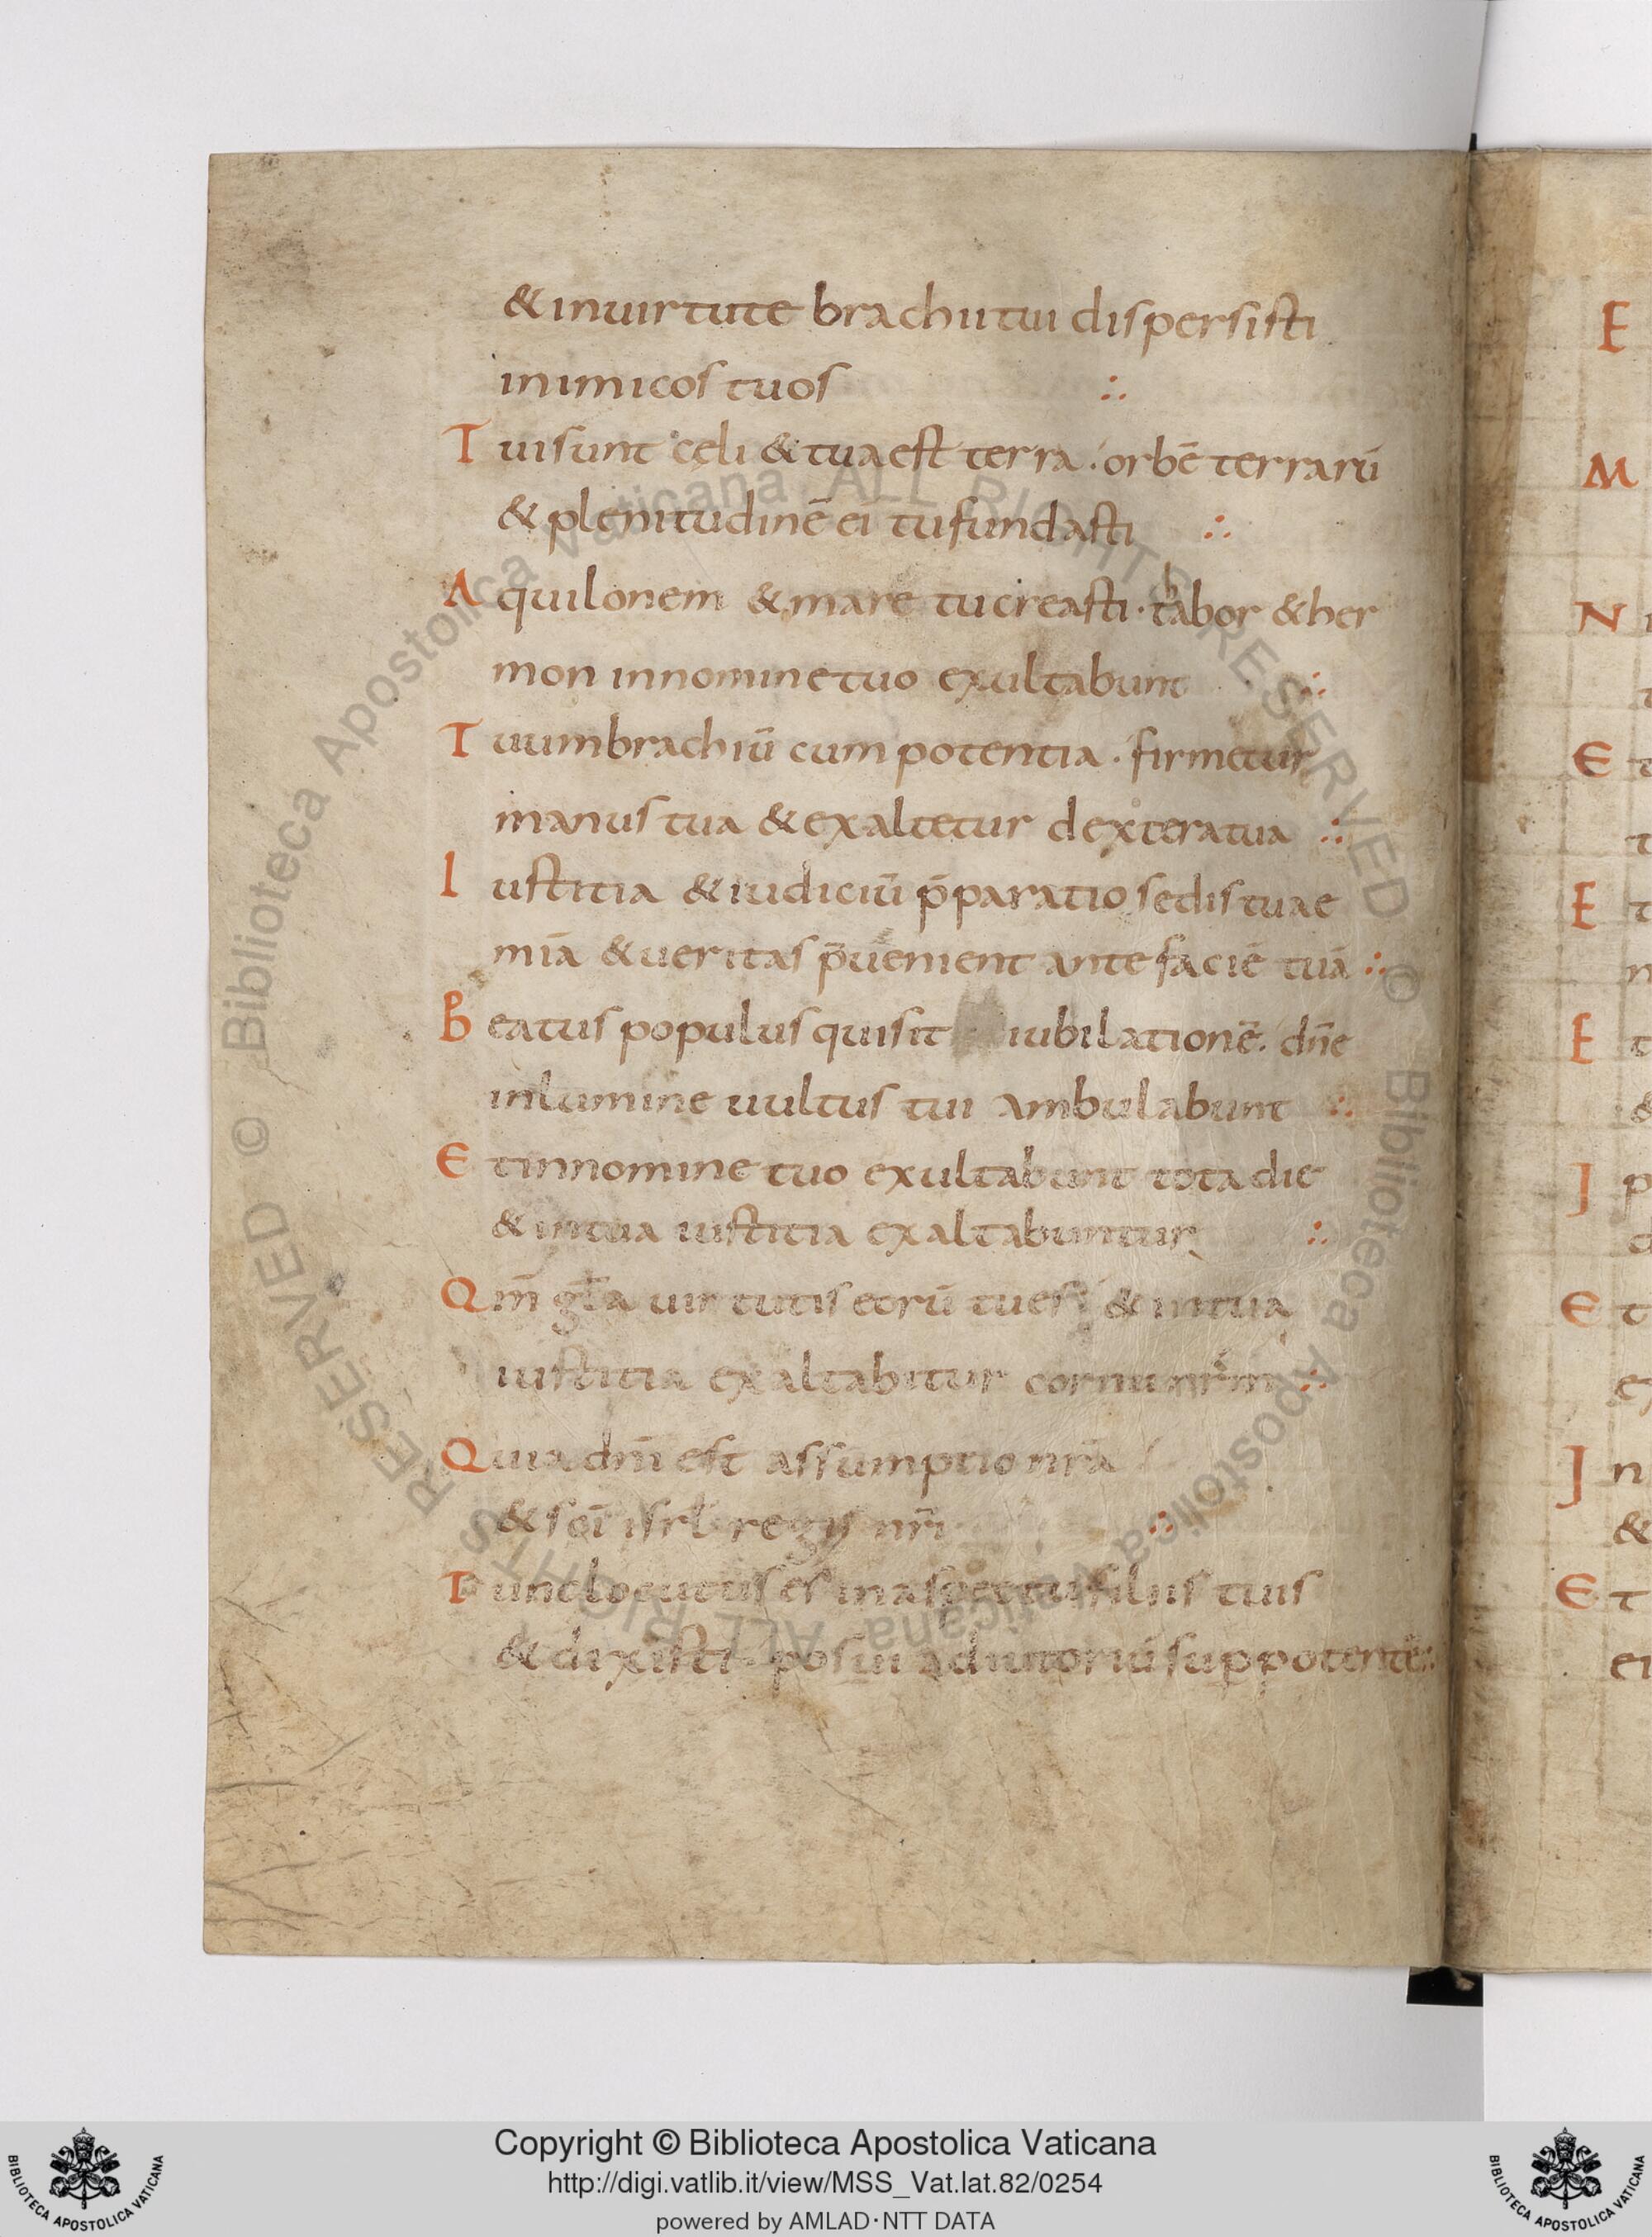 & inuirtute brachii tui dispersisti
inimicos tuos ∴
T ui sunt cęli & tua est terra · orbē terrarū
& plenitudinē ei tu fundasti ∴
A quilonem & mare tu creasti · thabor & her
mon innomine tuo exultabunt ∴
T uum brachiū cum potentia · firmetur
manus tua & exaltetur dextera tua ∴
I ustitia & iudiciū p̄paratio sedis tuae
mīa & ueritas p̄uenient ante faciē tuā ∴
B eatus populus qui sit iubilationē. dn̄e
inlumine uultus tui ambulabunt ∴
E t innomine tuo exultabunt tota die
& intua iustitia exaltabuntur ∴
Q m̄ gl̄a uirtutis eorū tu es & intua
iustitia exaltabitur cornu nr̄m ∴
Q uia dn̄i est assumptio nr̄a
& sc̄i isrl̄ regis nr̄i ∴
T unc locutus es inaspectu filiis tuis
& dixisti · posui adiutoriū sup potentē ∴
E
M
N
E
E
E
J
E
J
E
Copyright © Biblioteca Apostolica Vaticana
http://digi.vatlib.it/view/MSS_Vat.lat.82/0254
powered by AMLAD·NTT DATA
BIBLIOTECA APOSTOLICA VATICANA
BIBLIOTECA APOSTOLICA VATICANA
© Biblioteca Apostolica Vaticana ALL RIGHTS RESERVED © Biblioteca Apostolica Vaticana ALL RIGHTS RESERVED